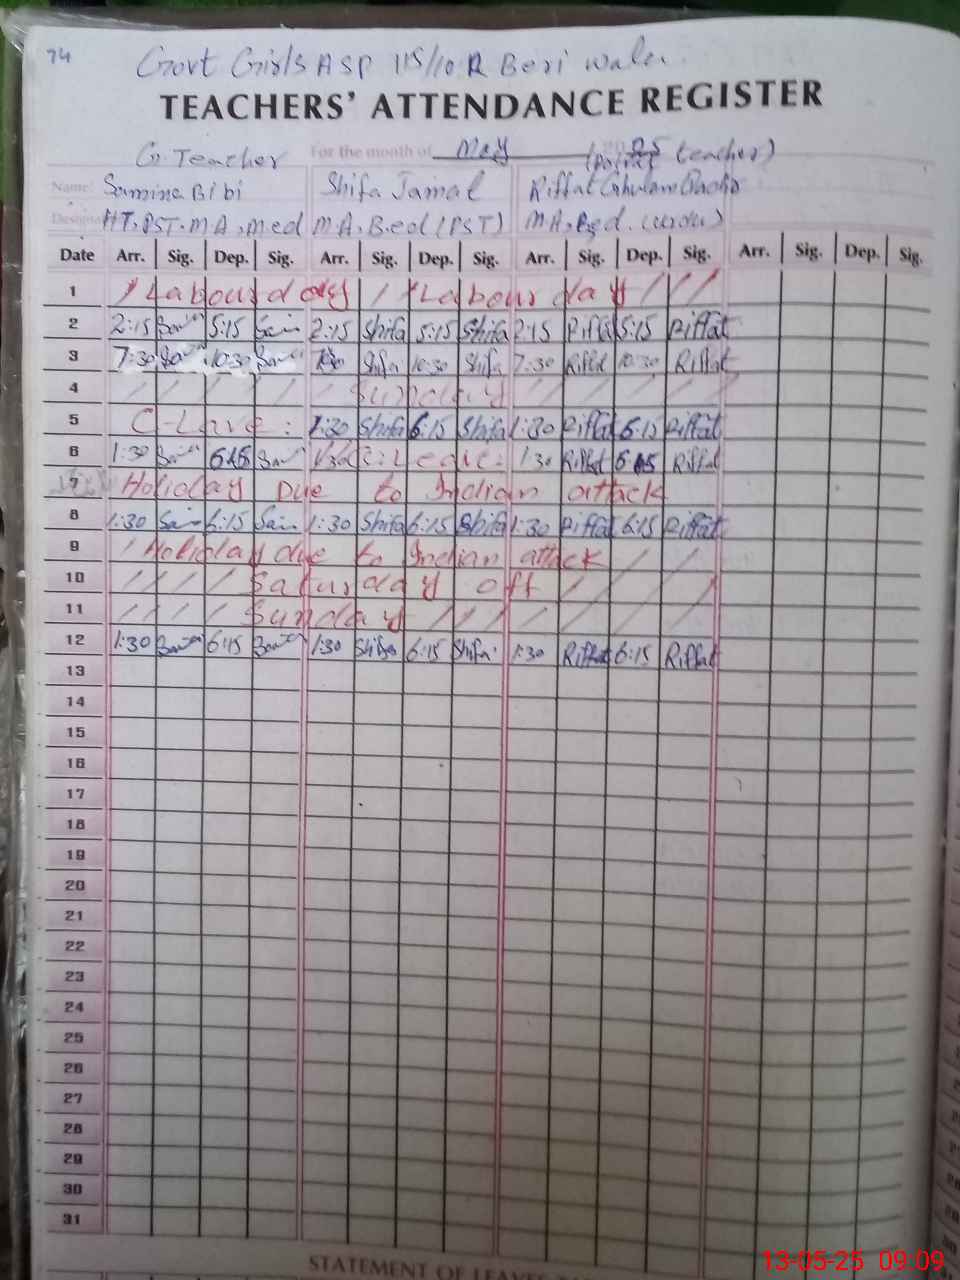 74
Govt Girls ASP 115/10 R Beri wala.
TEACHERS' ATTENDANCE REGISTER
G. Teacher For the month of May 2025 teacher)
Name: Samina Bibi Shifa Jamal Riffat Ghulam
HT, PST. M A, M.ed M A. B.ed (PST) M A, B.ed. (urdu)
Date Arr. Sig. Dep. Sig. Arr. Sig. Dep. Sig. Arr. Sig. Dep. Sig. Arr. Sig. Dep. Sig.
1 / Labour day / / Labour day / / /
2 2:15 5:15 2:15 Shifa 5:15 Shifa 2:15 Riffat 5:15 Riffat
3 7:30 10:30 7:30 Shifa 10:30 Shifa 7:30 Riffat 10:30 Riffat
4 / / / / Sunday / / / /
5 C-Leave: 1:30 Shifa 6:15 Shifa 1:30 Riffat 6:15 Riffat
6 1:30 6:15 1:30 Riffat 6:15 Riffat
7 Holiday Due to Indian attack
8 1:30 6:15 1:30 Shifa 6:15 Shifa 1:30 Riffat 6:15 Riffat
9 / Holiday due to Indian attack / /
10 / / / / Saturday off / / /
11 / / / / Sunday / / / / / / /
12 1:30 6:15 1:30 Shifa 6:15 Shifa 1:30 Riffat 6:15 Riffat
13
14
15
16
17
18
19
20
21
22
23
24
25
26
27
28
29
30
31
STATEMENT OF LEAVE
13-05-25 09:09